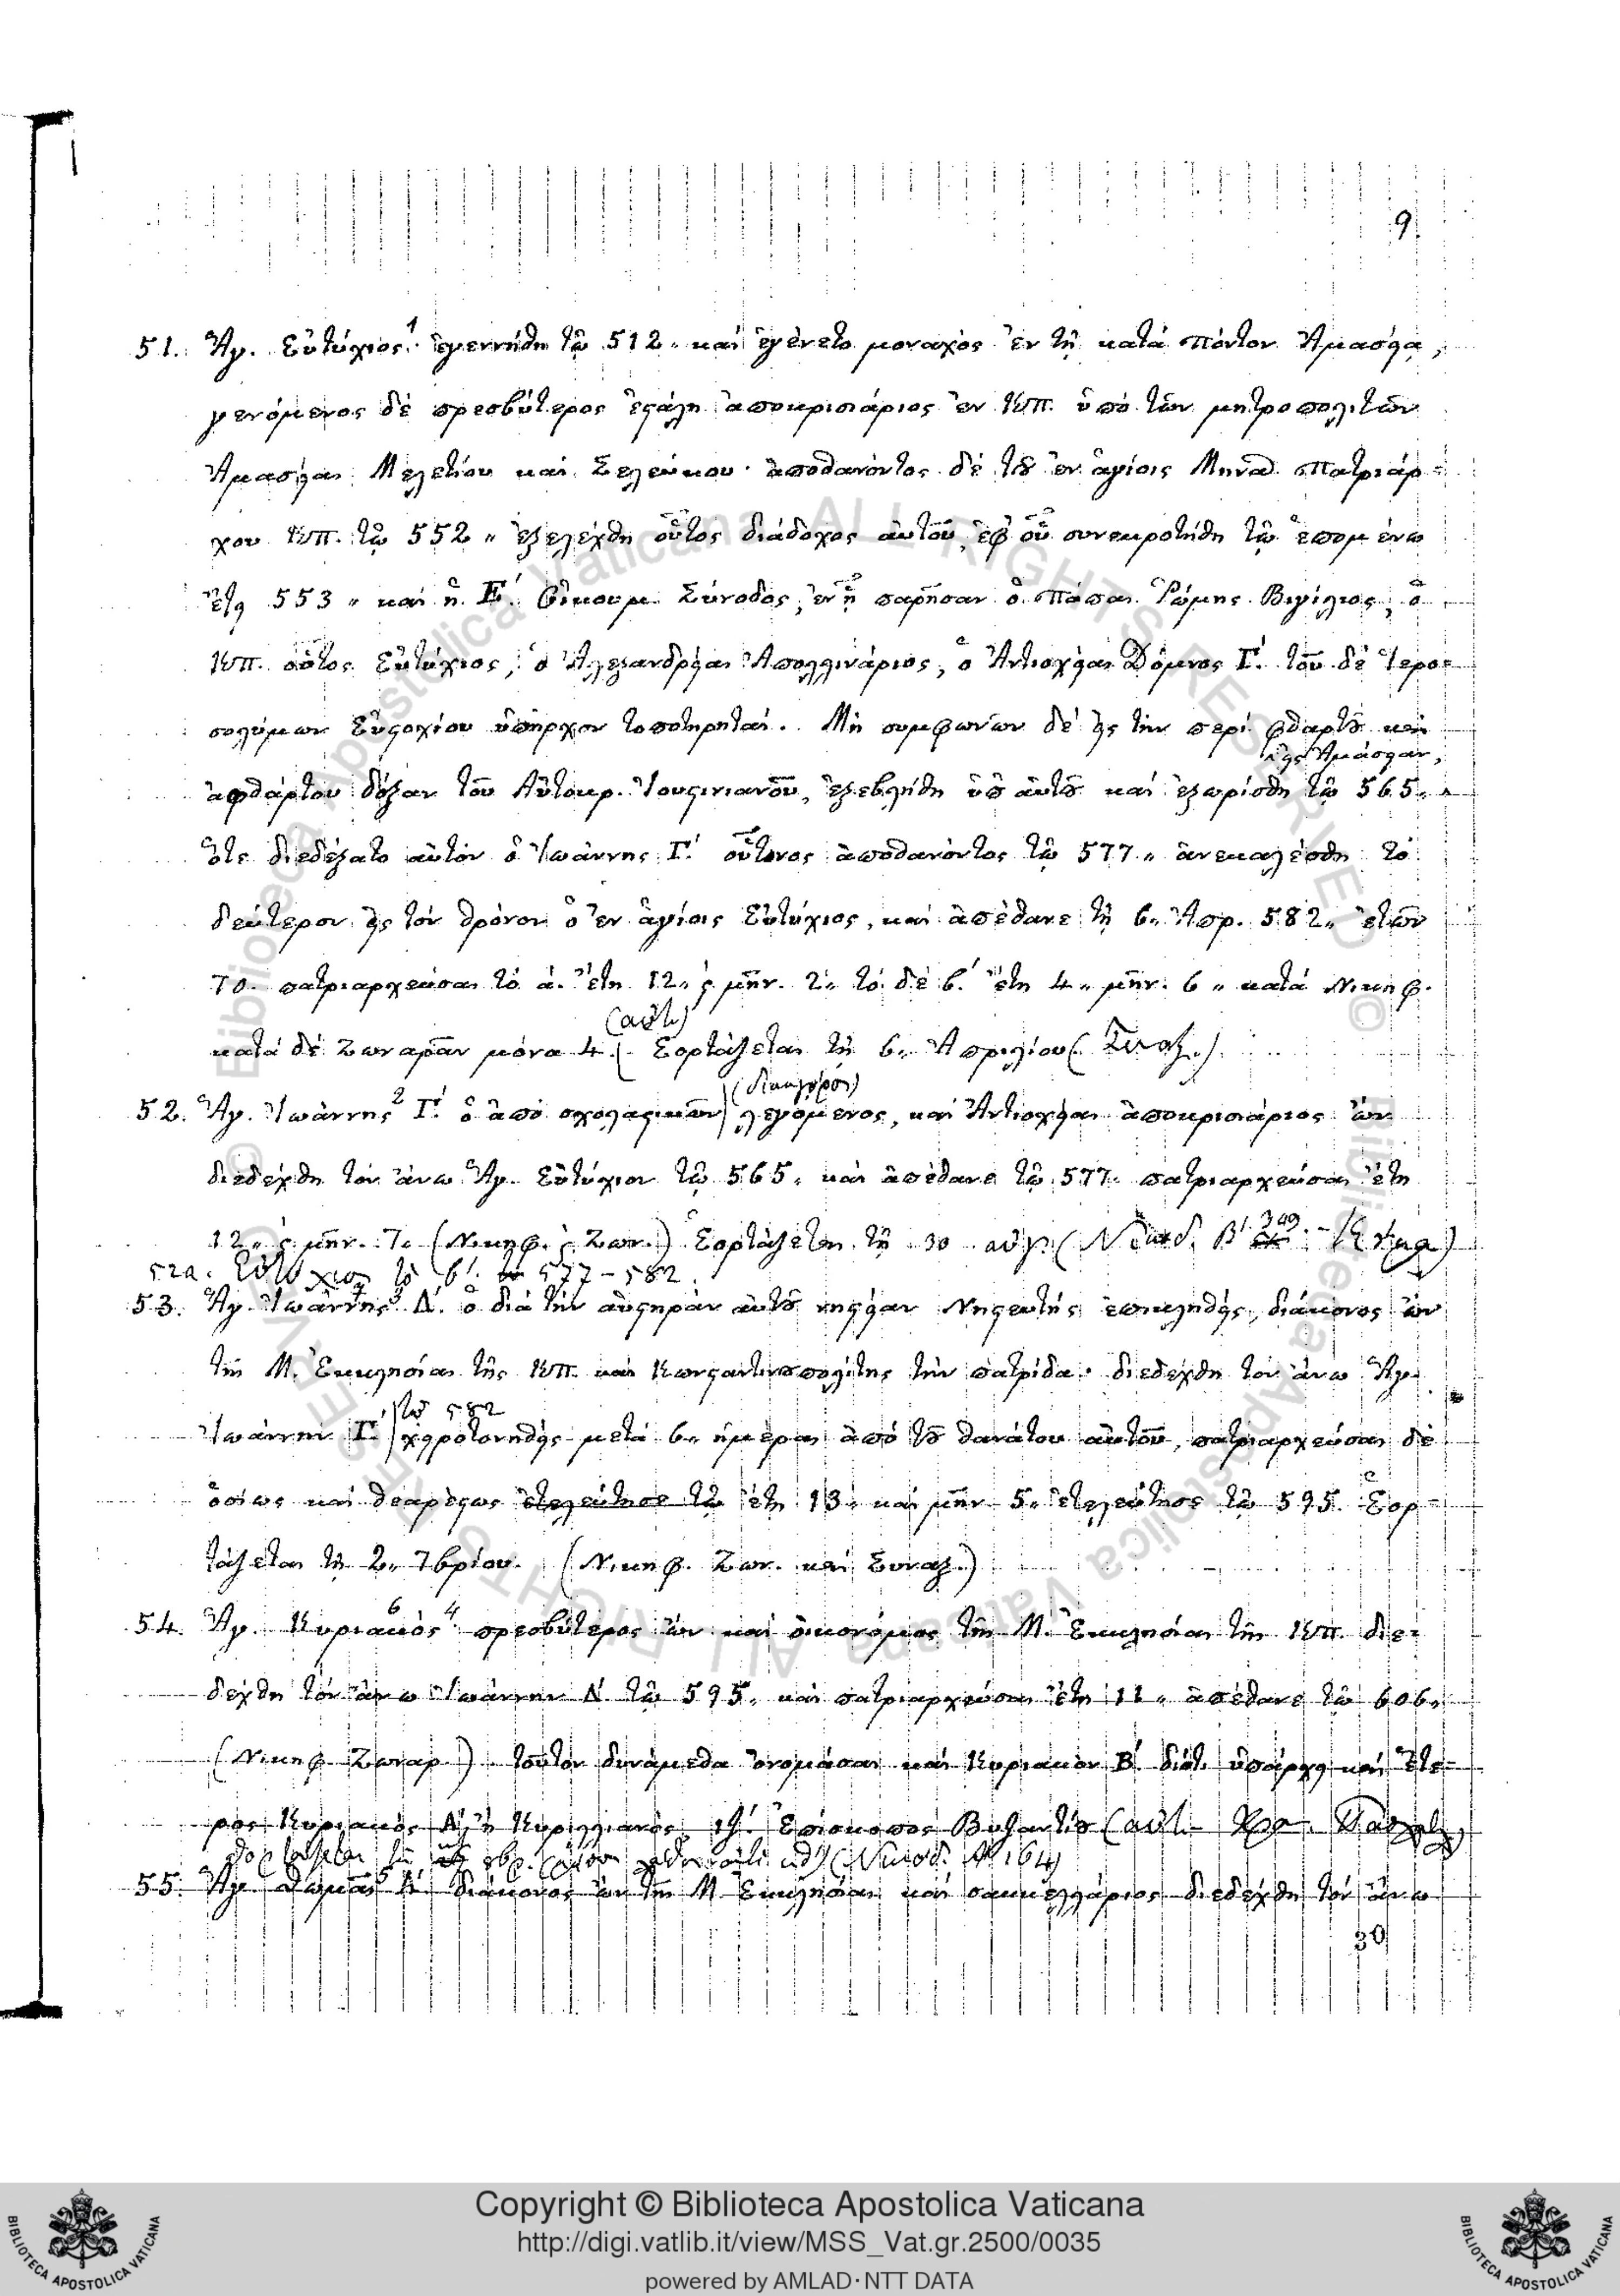 9.
51. Ἅγ. Εὐτύχιος¹· ἐγεννήθη τῷ 512 „ καί ἐγένετο μοναχός ἐν τῇ κατά πόντον Ἀμασείᾳ,
γενόμενος δέ πρεσβύτερος ἐστάλη ἀποκρισιάριος ἐν Κπ. ὑπό τῶν μητροπολιτῶν
Ἀμασείας Μελετίου καί Σελεύκου· ἀποθανόντος δέ τοῦ ἐν ἁγίοις Μηνᾶ πατριάρ=
χου Κπ. τῷ 552 „ ἐξελέχθη οὗτος διάδοχος αὐτοῦ, ἐφ᾽ οὗ συνεκροτήθη τῷ ἑπομένῳ
ἔτει 553 „ καί ἡ Ε΄. Οἰκουμ. Σύνοδος, ἐν ᾗ παρῆσαν ὁ πάπας Ῥώμης Βιγίλιος, ὁ
Κπ. οὗτος Εὐτύχιος, ὁ Ἀλεξανδρείας Ἀπολλινάριος, ὁ Ἀντιοχείας Δόμνος Γ΄. τοῦ δέ Ἱερο=
σολύμων Εὐστοχίου ὑπῆρχον τοποτηρηταί. Μή συμφωνῶν δέ εἰς τήν περί φθαρτοῦ καί
εἰς Ἀμάσειαν,
ἀφθάρτου δόξαν τοῦ Αὐτοκρ. Ἰουστινιανοῦ, ἐξεβλήθη ὑπ᾽ αὐτοῦ καί ἐξωρίσθη τῷ 565 „
ὅτε διεδέξατο αὐτόν ὁ Ἰωάννης Γ΄. οὗτινος ἀποθανόντος τῷ 577 „ ἀνεκαλέσθη τό
δεύτερον εἰς τόν θρόνον ὁ ἐν ἁγίοις Εὐτύχιος, καί ἀπέθανε τῇ 6 „ Ἀπρ. 582 „ ἐτῶν
70. πατριαρχεύσας τό ά. ἔτη 12 „ ϛ μῆν. 2 „ τό δέ β΄. ἔτη 4 „ μῆν. 6 „ κατά Νικηφ.
(αὐτ.)
κατά δέ Ζωναρᾶν μόνα 4. Ἑορτάζεται τῇ 6 „ Ἀπριλίου (Συναξ.)
(δικηγόρος)
52. Ἅγ. Ἰωάννης² Γ΄. ὁ ἀπό σχολαστικῶν λεγόμενος, καί Ἀντιοχείας ἀποκρισιάριος ὤν
διεδέχθη τόν ἄνω Ἅγ. Εὐτύχιον τῷ 565 „ καί ἀπέθανε τῷ 577 „ πατριαρχεύσας ἔτη
12 „ ϛ μῆν. 7 „ (Νικηφ. ϛ Ζων.) Ἑορτάζεται τῇ 30 αὐγ. (Νικοδ. Β΄. 349
52α. Εὐτύχιος τό β΄. 577 – 582.
53. Ἅγ. Ἰωάννης³ Δ΄. ὁ διά τήν αὐστηράν αὐτοῦ νηστείαν Νηστευτής ἐπικληθείς, διάκονος ὤν
τῆς Μ. Ἐκκλησίας τῆς Κπ. καί Κωνσταντινοπολίτης τήν πατρίδα· διεδέχθη τόν ἄνω Ἅγ.
τῷ 582
Ἰωάννην Γ΄. χειροτονηθείς μετά 6 „ ἡμέρας ἀπό τοῦ θανάτου αὐτοῦ, πατριαρχεύσας δέ
ὁσίως καί θεαρέστως ἐτελεύτησε τῷ ἔτη 13 „ καί μῆν. 5 „ ἐτελεύτησε τῷ 595. Ἑορ=
τάζεται τῇ 2 „ 7βρίου. (Νικηφ. Ζων. καί Συναξ.)
54. Ἅγ. Κυριακός⁴ πρεσβύτερος ὤν καί οἰκονόμος τῆς Μ. Ἐκκλησίας τῆς Κπ. διε=
δέχθη τόν ἄνω Ἰωάννην Δ΄ τῷ 595 „ καί πατριαρχεύσας ἔτη 11 „ ἀπέθανε τῷ 606 „
(Νικηφ. Ζωναρ.) τοῦτον δυνάμεθα ὀνομάσαι καί Κυριακόν Β΄. διότι ὑπάρχει καί ἕτε=
ρος Κυριακός Α΄. ἤ Κυριλλιανός, ιζ΄. Ἐπίσκοπος Βυζαντίου (αὐτ.
ἑορτάζεται (Νικοδ. Α΄ 164)
55. Ἅγ. Θωμᾶς⁵ Α΄. διάκονος ὤν τῆς Μ. Ἐκκλησίας καί σακκελλάριος διεδέχθη τόν ἄνω
30
Copyright © Biblioteca Apostolica Vaticana
http://digi.vatlib.it/view/MSS_Vat.gr.2500/0035
powered by AMLAD·NTT DATA